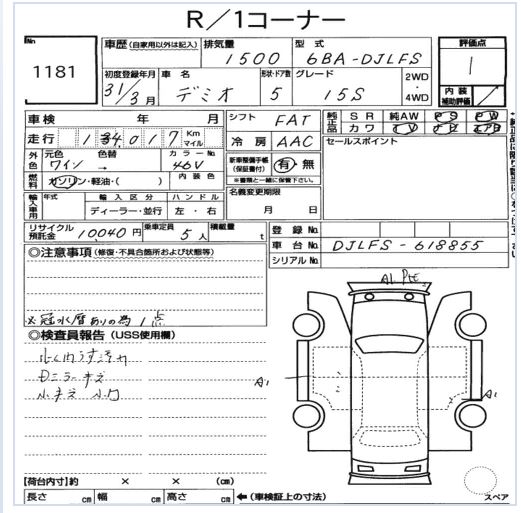 R／1コーナー
No.
1181
車歴（自家用以外は記入）
排気量
1500
型式
6BA-DJLFS
評価点
1
初度登録年月
31/3月
車名
デミオ
形状・ドア数
5
グレード
15S
2WD
・
4WD
内装
補助評価
車検 年 月
シフト FAT
純正品
SR 純AW PS PW
カワ TV ナビ エアB
走行 134,017 Km マイル
冷房 AAC
セールスポイント
外色 元色 ワイン 色替 → カラーNo 46V
新車整備手帳（保証書付） 有・無
※書類と一緒に保管下さい。
燃料 ガソリン・軽油・（ ） 内装色
輸入車用 年式 輸入区分 ハンドル
ディーラー・並行 左・右
名義変更期限
月 日
リサイクル預託金 10040円 乗車定員 5人 積載量 t
登録No.
車台No. DJLFS-618855
シリアルNo.
◎注意事項（修復・不具合箇所および状態等）
※冠水歴ありの為1点
◎検査員報告（USS使用欄）
小キズ 小凹
A1
A1
A1
【荷台内寸】約 × × （cm）
長さ cm 幅 cm 高さ cm ←（車検証上の寸法）
スペア